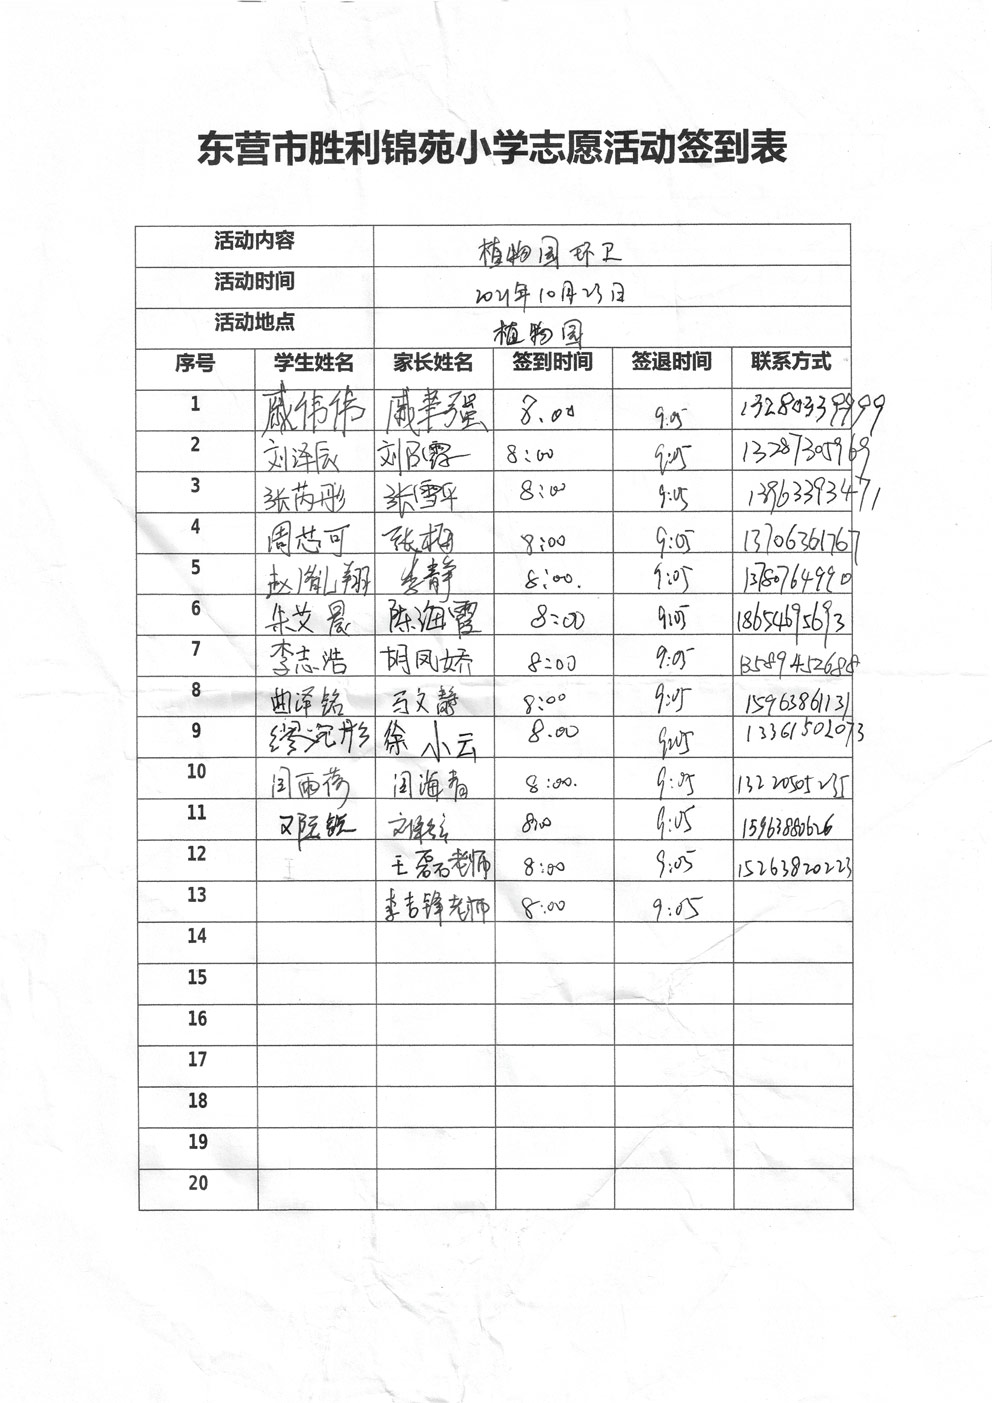 东营市胜利锦苑小学志愿活动签到表
活动内容 植物园环卫
活动时间 2021年10月23日
活动地点 植物园
序号 学生姓名 家长姓名 签到时间 签退时间 联系方式
1 戚伟伟 戚华强 8.00 9:05 13280339999
2 刘泽辰 刘 8:00 9:05 13287305969
3 张芮彤 张雪平 8:00 9:05 13963393471
4 周芯可 张梅 8:00 9:05 13706361767
5 赵胤翔 李静 8:00. 9:05 13780764990
6 朱艾晨 陈海霞 8:00 9:05 18654695693
7 李志浩 胡凤娇 8:00 9:05 13589452688
8 曲泽铭 马文静 8:00 9:05 15963861131
9 缪沅彤 徐小云 8.00 9:05 13361502073
10 闫雨荷 闫海青 8:00. 9:05 13220505235
11 8:00 9:05 15963880626
12 王磊老师 8:00 9:05 15263820223
13 李吉锋老师 8:00 9:05
14
15
16
17
18
19
20